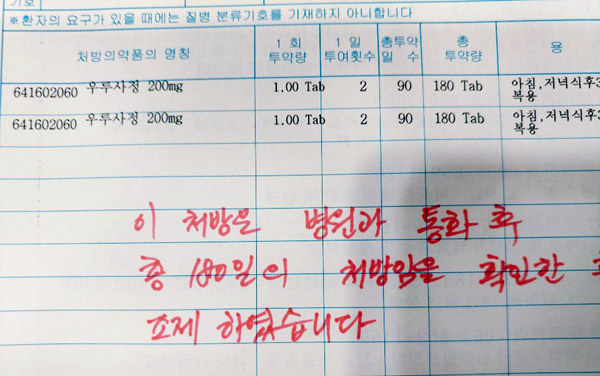 기호
※환자의 요구가 있을 때에는 질병 분류기호를 기재하지 아니합니다
처방의약품의 명칭 1 회 투약량 1 일 투여횟수 총투약 일 수 총 투약량 용
641602060 우루사정 200mg 1.00 Tab 2 90 180 Tab 아침,저녁식후3 복용
641602060 우루사정 200mg 1.00 Tab 2 90 180 Tab 아침,저녁식후3 복용
이 처방은 병원과 통화 후
총 180일의 처방임을 확인한
조제 하였습니다